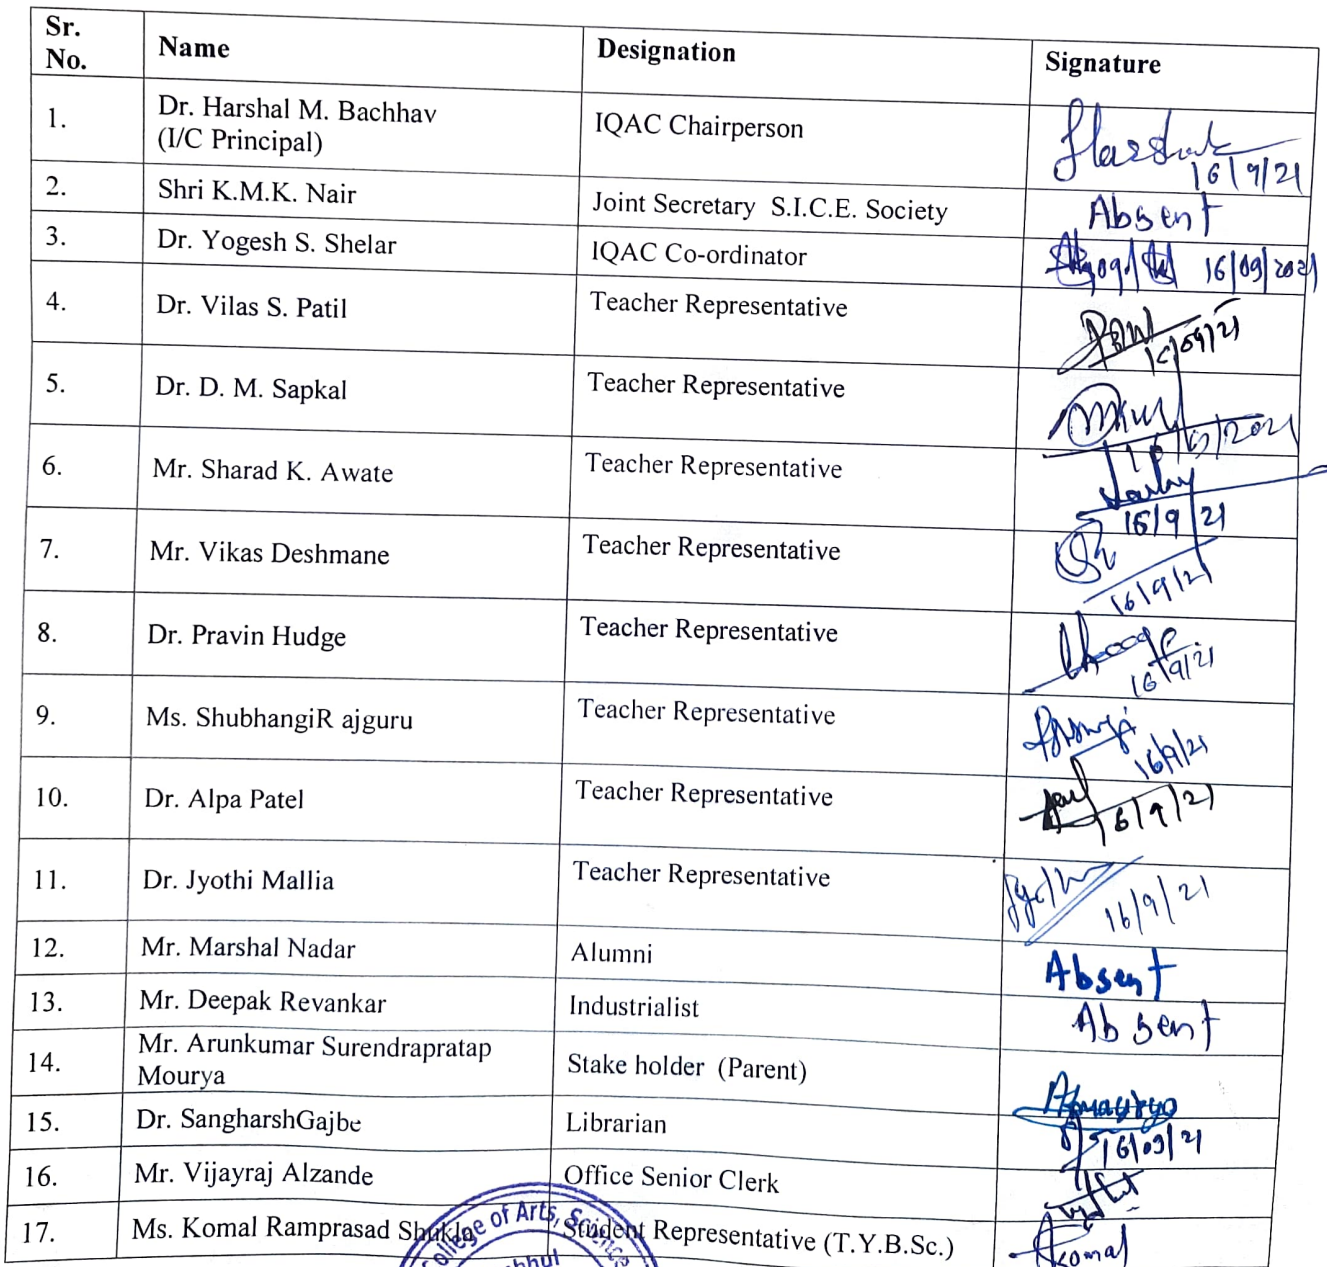 Sr. No. Name Designation Signature
1. Dr. Harshal M. Bachhav (I/C Principal) IQAC Chairperson Harshal 16/9/21
2. Shri K.M.K. Nair Joint Secretary S.I.C.E. Society Absent
3. Dr. Yogesh S. Shelar IQAC Co-ordinator 16/09/2021
4. Dr. Vilas S. Patil Teacher Representative 16/09/21
5. Dr. D. M. Sapkal Teacher Representative
6. Mr. Sharad K. Awate Teacher Representative 16/9/21
7. Mr. Vikas Deshmane Teacher Representative 16/9/21
8. Dr. Pravin Hudge Teacher Representative 16/9/21
9. Ms. ShubhangiR ajguru Teacher Representative 16/9/21
10. Dr. Alpa Patel Teacher Representative 16/9/21
11. Dr. Jyothi Mallia Teacher Representative 16/9/21
12. Mr. Marshal Nadar Alumni Absent
13. Mr. Deepak Revankar Industrialist Absent
14. Mr. Arunkumar Surendrapratap Mourya Stake holder (Parent)
15. Dr. SangharshGajbe Librarian 16/09/21
16. Mr. Vijayraj Alzande Office Senior Clerk
17. Ms. Komal Ramprasad Shukla Student Representative (T.Y.B.Sc.) Komal
College of Arts, Science